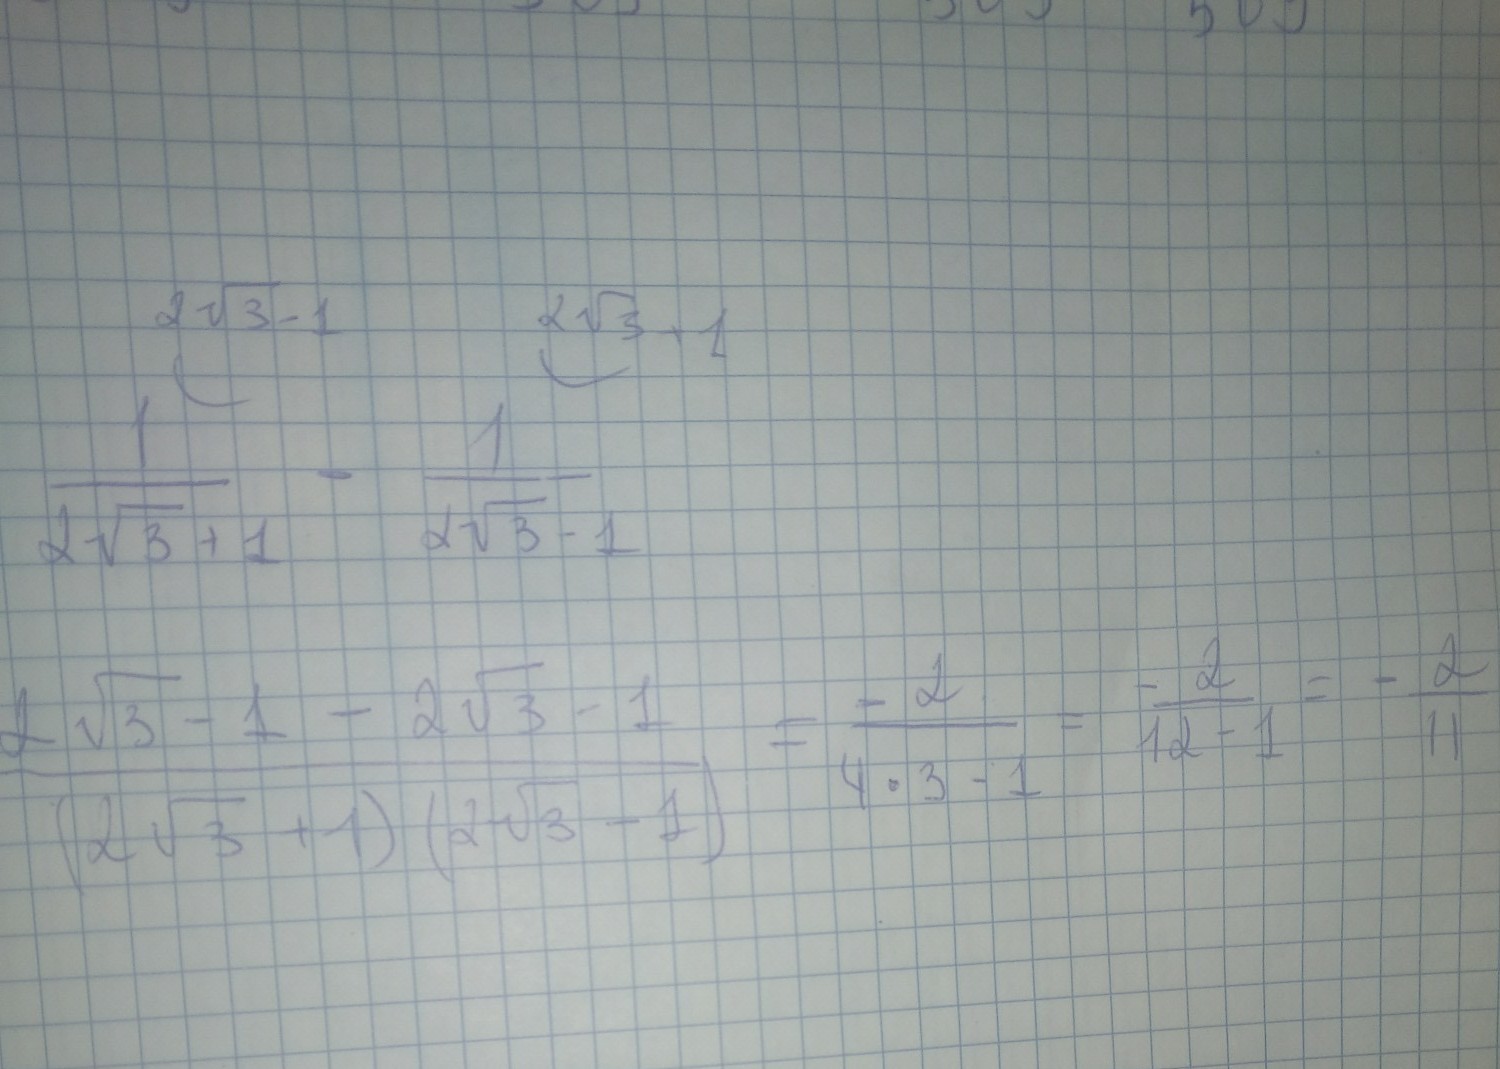 2√3 - 1 2√3 + 1
1/(2√3 + 1) - 1/(2√3 - 1)
(2√3 - 1 - 2√3 - 1)/((2√3 + 1)(2√3 - 1)) = (-2)/(4 · 3 - 1) = (-2)/(12 - 1) = -2/11